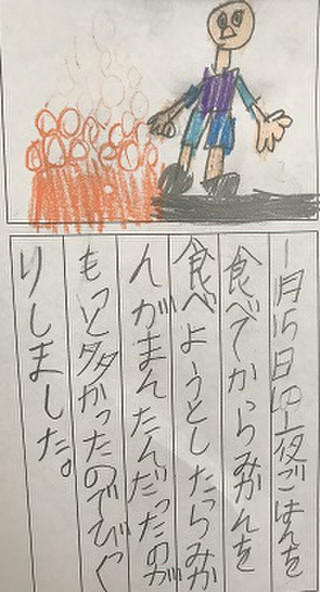 1月15日の夜ごはんを
食べてからみかんを
食べようとしたらみか
んがまんたんだったのが
もっと多かったのでびっく
りしました。